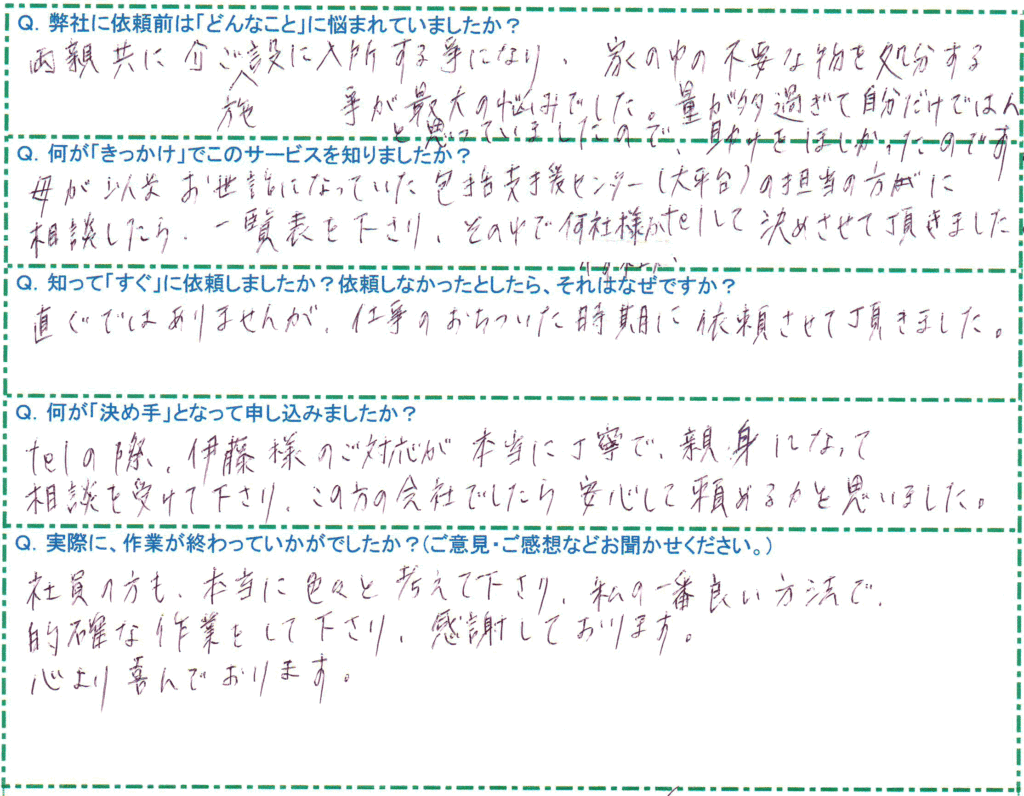 Q. 弊社に依頼前は「どんなこと」に悩まれていましたか？
両親共に 介ご施設に入所する事になり、家の中の不要な物を処分する
事が最大の悩みでした。量が多過ぎて自分だけではムリ
と思っていましたので、助けをほしかったのです
Q. 何が「きっかけ」でこのサービスを知りましたか？
母が以前お世話になっていた包括支援センター(大平台)の担当の方に
相談したら、一覧表を下さり、その中で何社様かtelして決めさせて頂きました
Q. 知って「すぐ」に依頼しましたか？依頼しなかったとしたら、それはなぜですか？
直ぐではありませんが、仕事のおちついた時期に依頼させて頂きました。
Q. 何が「決め手」となって申し込みましたか？
telの際、伊藤様のご対応が本当に丁寧で、親身になって
相談を受けて下さり、この方の会社でしたら安心して頼めるかと思いました。
Q. 実際に、作業が終わっていかがでしたか？（ご意見・ご感想などお聞かせください。）
社員の方も、本当に色々と考えて下さり、私の一番良い方法で、
的確な作業をして下さり、感謝しております。
心より喜んでおります。